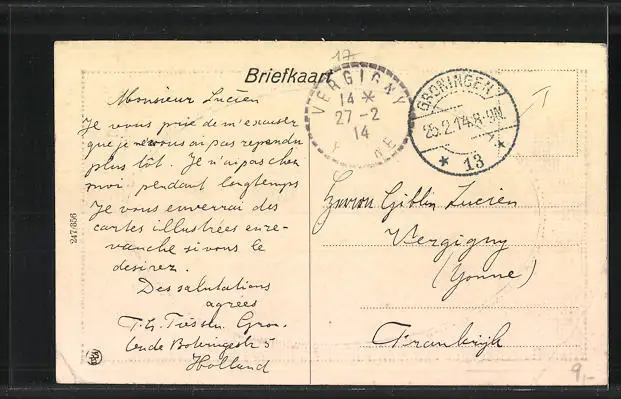 17
Briefkaart
Monsieur Lucien
Je vous prie de m'excuser
que je ne vous ai pas rependu
plus tôt. Je n'ai pas chez
moi pendant longtemps
Je vous enverrai des
cartes illustrées en re-
vanche si vous le
desirez.
Des salutations
agrées
Th. Gron.
Holland
247/856
VERGIGNY
14 *
27-2
14
GRONINGEN
25.2.14.8-9N.
* 13 *
T
Giblin Lucien
Vergigny
(Yonne)
Frankrijk
9,-